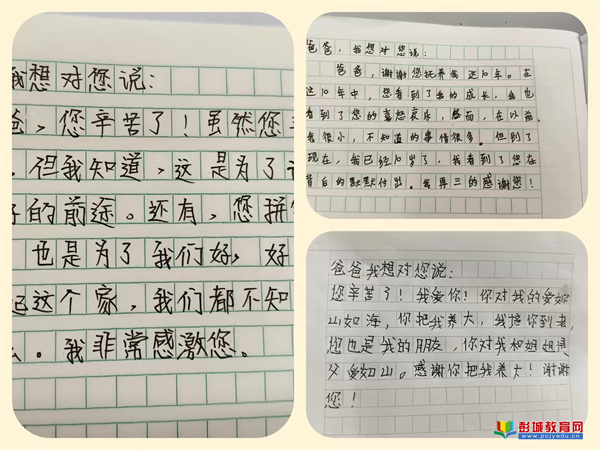 我想对您说：
爸，您辛苦了！虽然您
但我知道，这是为了
好的前途。还有，您拼
也是为了我们好，好
这个家，我们都不知
。我非常感激您。
爸爸，我想对您说：
爸爸，谢谢您抚养我这10年。在
这10年中，您看到了我的成长，我也
看到了您的喜怒哀乐，然而，在以前
我很小，不知道的事情很多。但到了
现在，我已经10岁了，我看到了您在
背后的默默付出。我再三的感谢您！
爸爸我想对您说：
您辛苦了！我爱你！你对我的爱如
山如海，你把我养大，我撑你到老，
您也是我的朋友，你对我和姐姐是
父爱如山。感谢你把我养大！谢谢
您！
彭城教育网
www.pcjyedu.cn